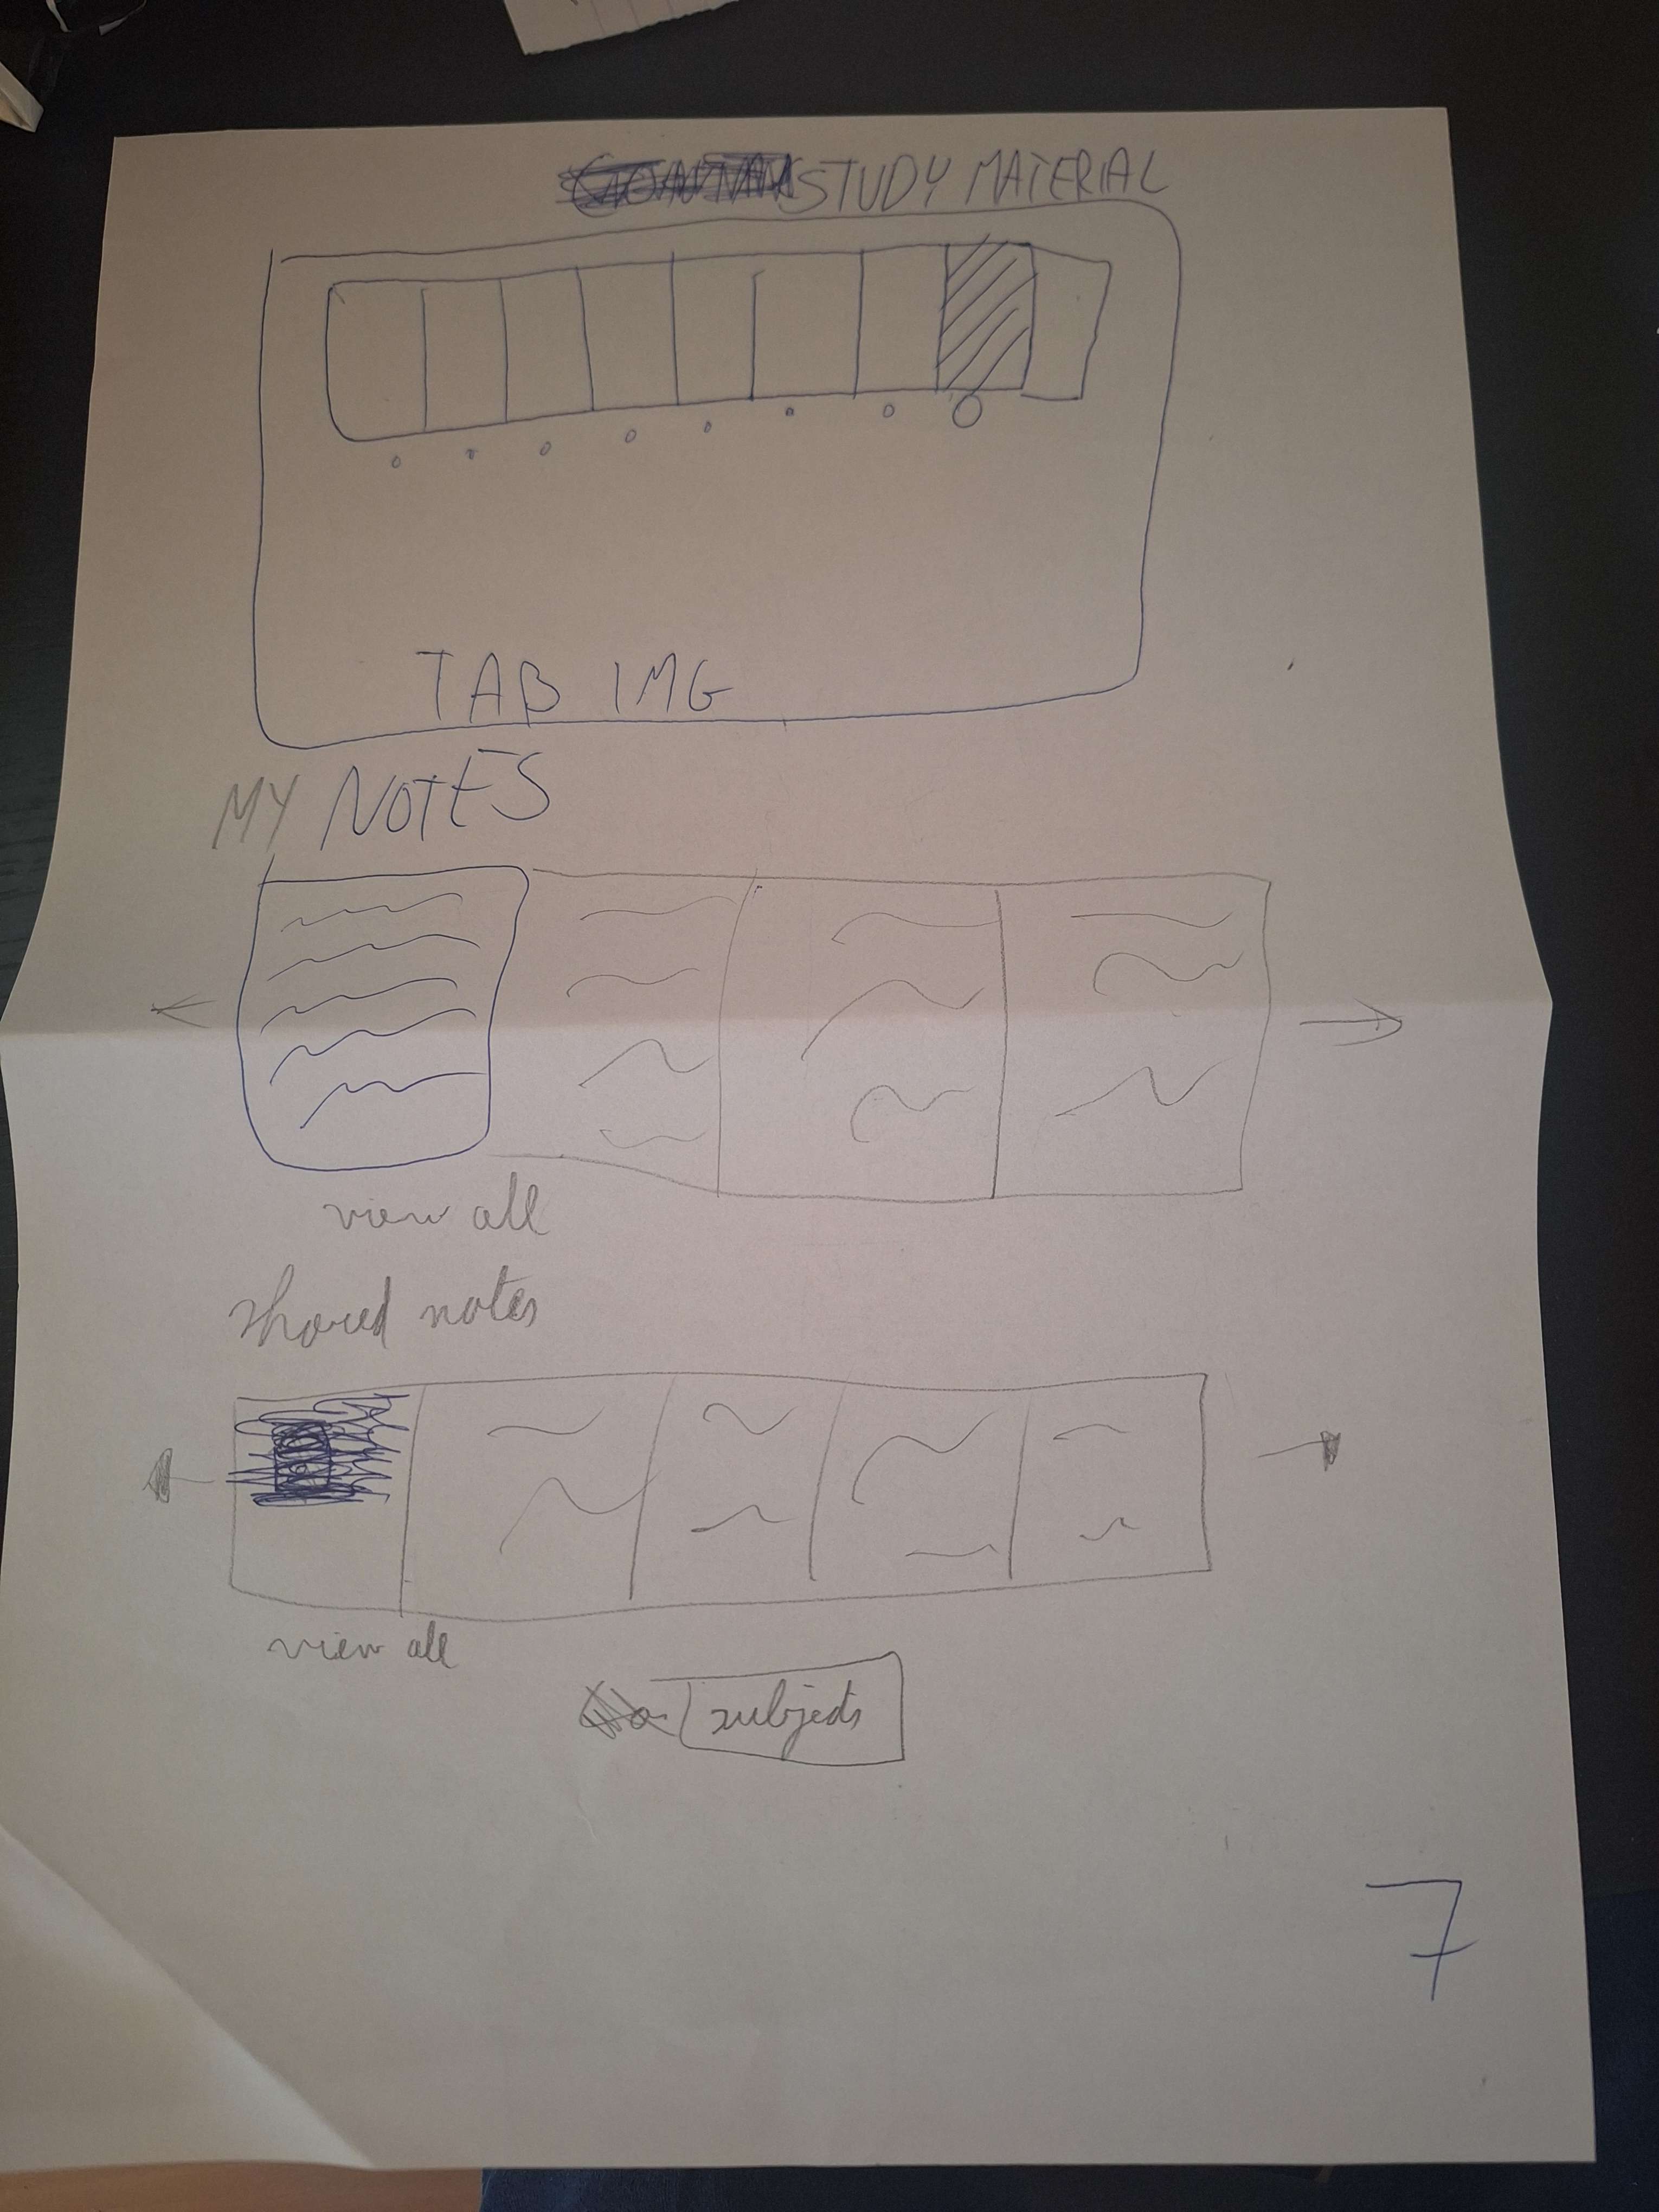 STUDY MATERIAL
TAB IMG
MY NOTES
view all
shared notes
view all
subjects
7